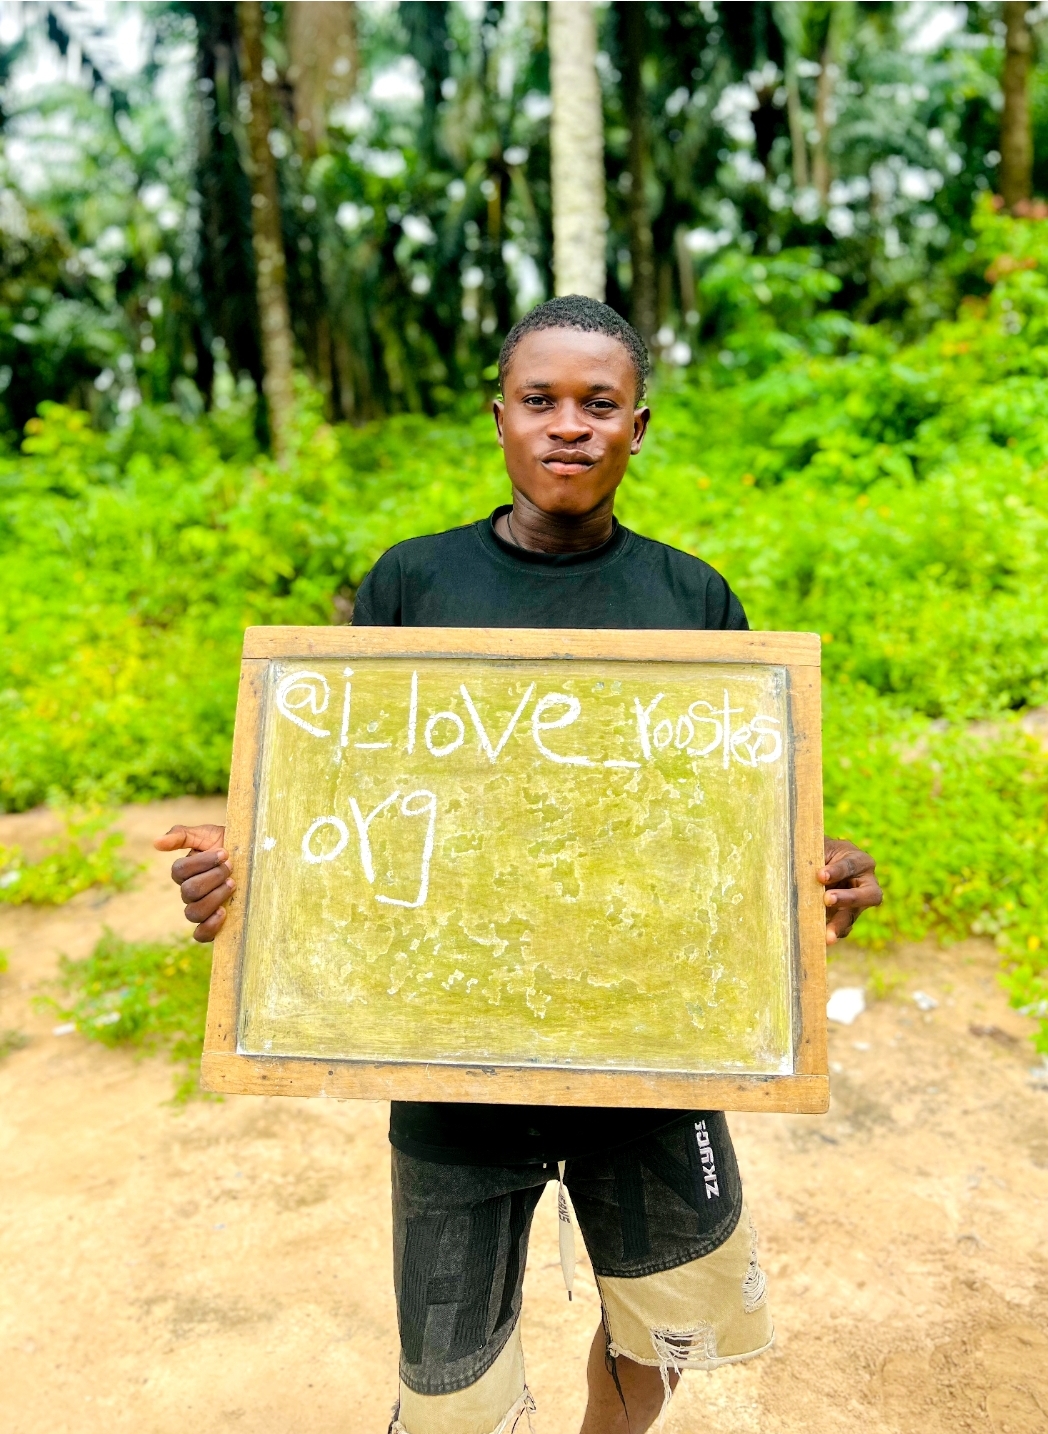 @i_love_roostes
.org
ZKYCS